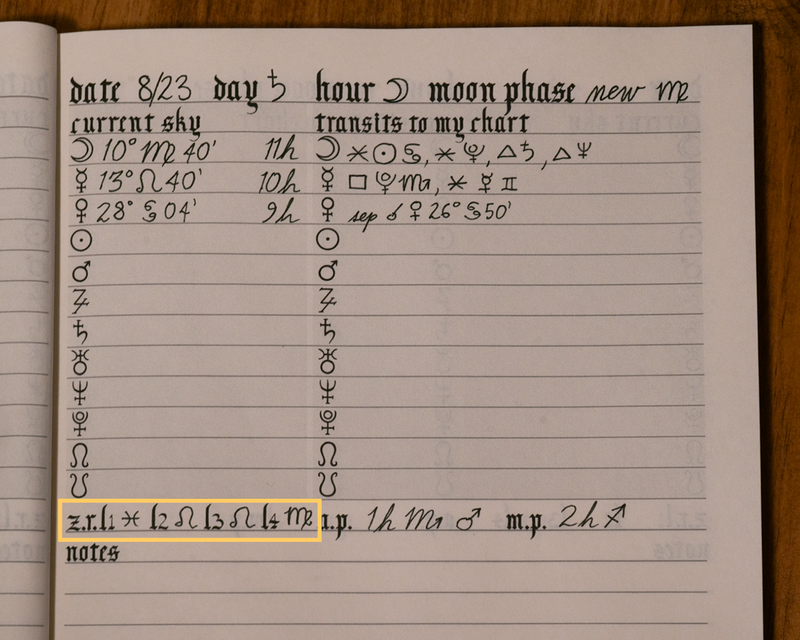 date 8/23 day ♄ hour ☽ moon phase new ♍
current sky transits to my chart
☽ 10° ♍ 40' 11h ☽ ⚹ ☉ ♋, ⚹ ♆, △ ♄, △ ♆
☿ 13° ♌ 40' 10h ☿ □ ♆ ♏, ⚹ ☿ ♊
♀ 28° ♋ 04' 9h ♀ sep ☌ ♀ 26° ♋ 50'
☉ ☉
♂ ♂
♃ ♃
♄ ♄
♅ ♅
♆ ♆
♇ ♇
☊ ☊
☋ ☋
z.r. l1 ♓ l2 ♌ l3 ♌ l4 ♍ a.p. 1h ♏ ♂ m.p. 2h ♐
notes